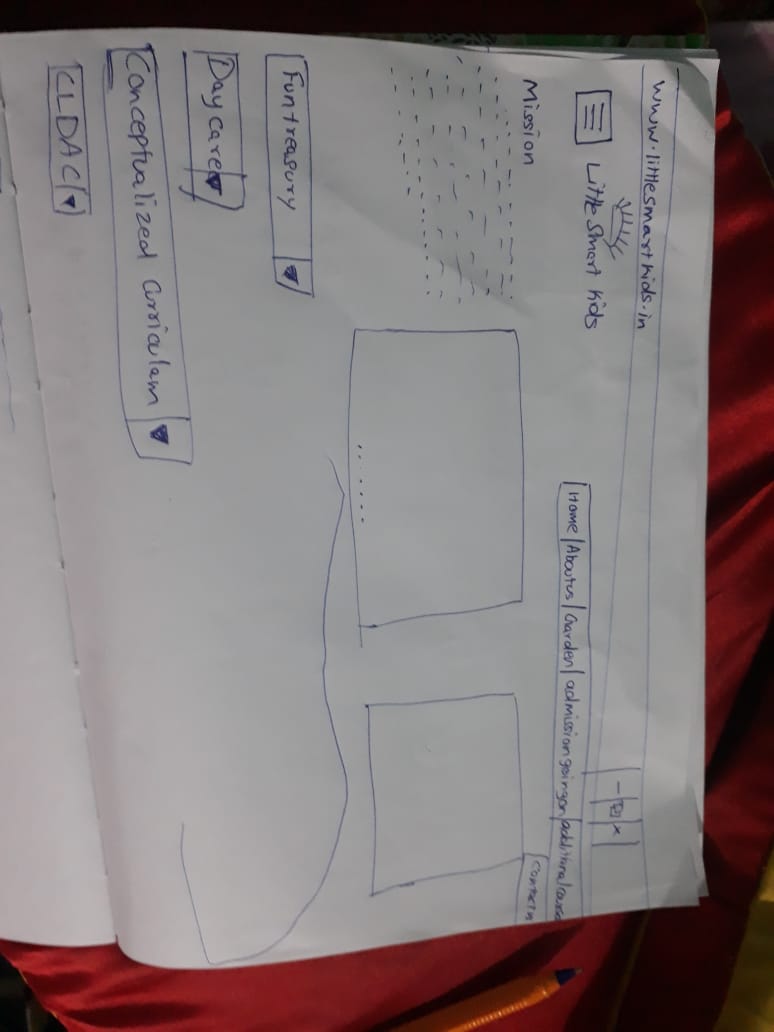 www.littlesmartkids.in
Little Smart Kids
Home | Aboutus | Garden | admission goingon | additional course
Contact us
Mission
Funtreasury
Day care
Conceptualized Curriculam
CLDAC